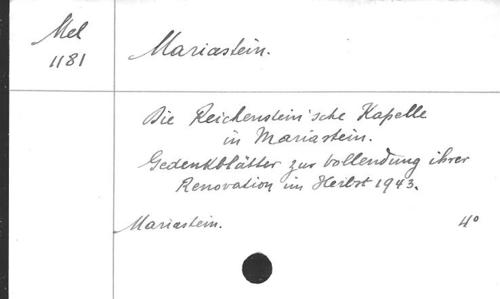 Mel
1181
Mariastein.
Die Reichenstein'sche Kapelle
in Mariastein.
Gedenkblätter zur Vollendung ihrer
Renovation im Herbst 1943.
Mariastein. 4°